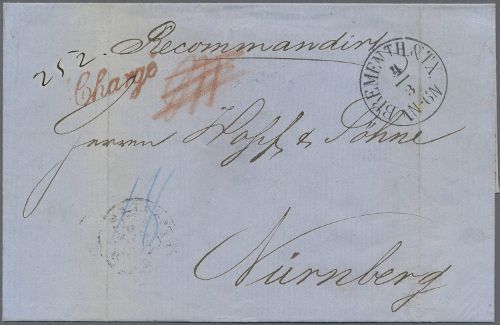 252. Recommandirt
Chargé
BREMEN TH. & TX.
4/3
5-6N
Herren Hopf & Söhne
Nürnberg